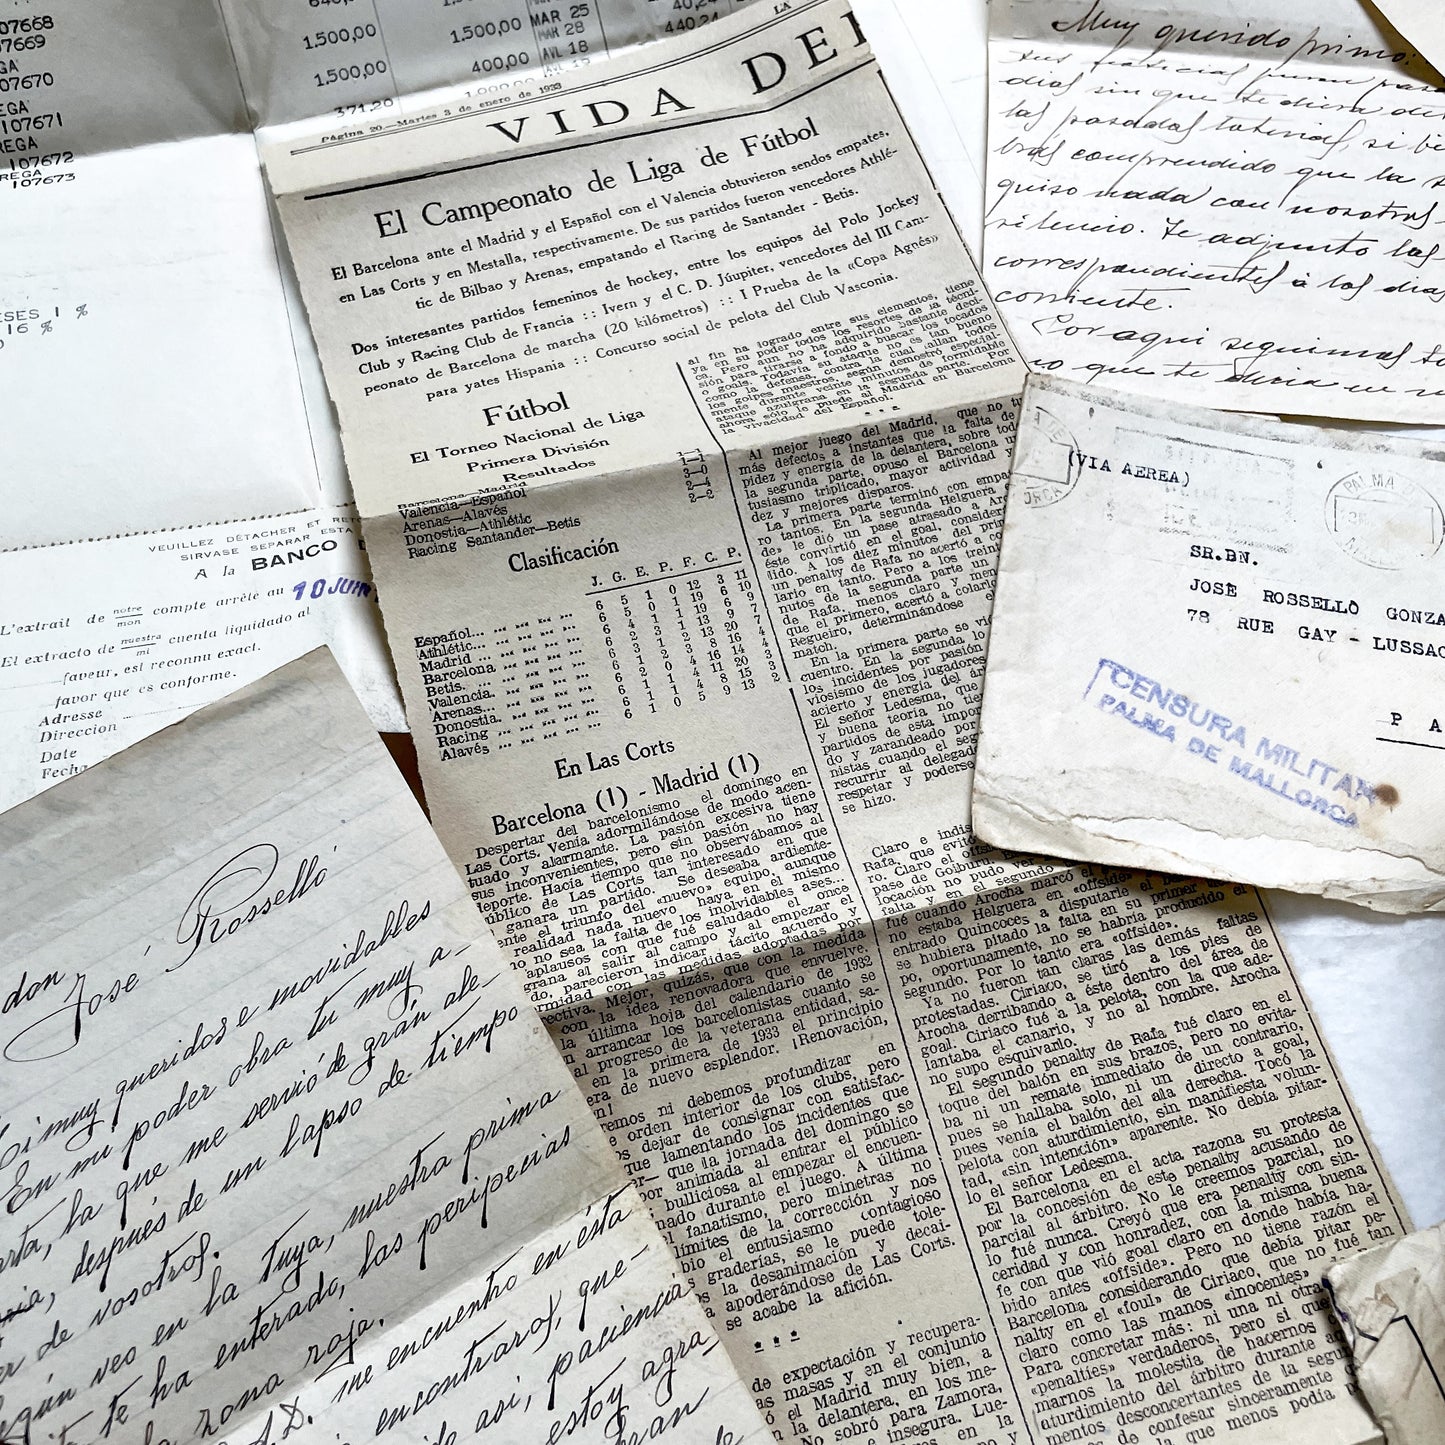 107668
107669
107670
107671
107672
107673
1.500,00
1.500,00
371.20
1.500,00
400,00
MAR 25
MAR 28
AVL 18
40,24
440,24
16 %
VEUILLEZ DÉTACHER ET
SIRVASE SEPARAR ESTA
A la BANCO
10 JUIN
L'extrait de notre mon compte arrêté au
El extracto de nuestra mi cuenta liquidado al
faveur, est reconnu exact.
favor que es conforme.
Adresse
Direccion
Date
Fecha
Página 20.—Martes 3 de enero de 1933
LA
VIDA DE
El Campeonato de Liga de Fútbol
El Barcelona ante el Madrid y el Español con el Valencia obtuvieron sendos empates,
en Las Corts y en Mestalla, respectivamente. De sus partidos fueron vencedores Athlé-
tic de Bilbao y Arenas, empatando el Racing de Santander - Betis.
Dos interesantes partidos femeninos de hockey, entre los equipos del Polo Jockey
Club y Racing Club de Francia :: Ivern y el C. D. Júupiter, vencedores del III Cam-
peonato de Barcelona de marcha (20 kilómetros) :: I Prueba de la «Copa Agnés»
para yates Hispania :: Concurso social de pelota del Club Vasconia.
Fútbol
El Torneo Nacional de Liga
Primera División
Resultados
Barcelona—Madrid 1—1
Valencia—Español 1—1
Arenas—Alavés 3—0
Donostia—Athlétic 2—4
Racing Santander—Betis 2—2
Clasificación
J. G. E. P. F. C. P.
Español... 6 5 1 0 12 3 11
Athlétic... 6 5 0 1 19 6 10
Madrid ... 6 4 1 1 19 6 9
Barcelona
Betis.
Valencia.
Arenas...
Donostia.
Racing
Alavés ... 6 1 0 5 9 13 2
En Las Corts
Barcelona (1) - Madrid (1)
Despertar del barcelonismo el domingo en
Las Corts. Venía adormilándose de modo acen-
tuado y alarmante. La pasión excesiva tiene
sus inconvenientes, pero sin pasión no hay
deporte. Hacía tiempo que no observábamos al
público de Las Corts tan interesado en que
ganara un partido. Se deseaba ardiente-
ente el triunfo del «nuevo» equipo, aunque
realidad nada nuevo haya en el mismo
no sea la falta de los inolvidables ases...
aplausos con que fué saludado el once
grana al salir al campo y al empezar el
do, parecieron indicar tácito acuerdo y
rmidad con las medidas adoptadas por
ectiva. Mejor, quizás, que con la medida
con la idea renovadora que envuelve.
última hoja del calendario de 1932
arrancar los barcelonistas cuanto se
al progreso de la veterana entidad, sa-
en la primera de 1933 el principio
era de nuevo esplendor. ¡Renovación,
remos ni debemos profundizar en
orden interior de los clubs, pero
s dejar de consignar con satisfac-
que lamentando los incidentes que
— que la jornada del domingo se
por animada al entrar el público
bulliciosa al empezar el encuen-
nado durante el juego. A última
fanatismo, pero minetras no
límites de la corrección y no
bio el entusiasmo contagioso
graderías, se le puede tole-
s la desanimación y decai-
apoderándose de Las Corts.
se acabe la afición.
* * *
de expectación y recupera-
as masas y en el conjunto
ó el Madrid muy bien, a
n la delantera, en los me-
No sobró para Zamora,
e insegura. Lue-
al fin ha logrado entre sus elementos, tiene
ya en su poder todos los resortes de la técni-
ca. Pero aun no ha adquirido bastante deci-
sión para tirarse a fondo a buscar los tocados
o goals. Todavía su ataque no es tan bueno
como la defensa, contra la cual
los golpes maestros, según demostró especial
mente durante veinte minutos de formidable
ataque azulgrana en la segunda parte. Por
ahora sólo le puede al Madrid en Barcelona
la vivacidad del Español.
* * *
Al mejor juego del Madrid, que no tu
más defectos a instantes que la falta de
pidez y energía de la delantera, sobre tod
la segunda parte, opuso el Barcelona un
tusiasmo triplicado, mayor actividad y
dez y mejores disparos.
La primera parte terminó con empa
ro tantos. En la segunda Helguera
de» le dió un pase atrasado a Aro
éste convirtió en el goal, consider
lido. A los diez minutos del prin
un penalty de Rafa no acertó a co
larlo en tanto. Pero a los trein
nutos de la segunda parte un
de Rafa, menos claro y men
que el primero, acertó a colarlo
Regueiro, determinándose el
match.
En la primera parte se vió
cuentro. En la segunda lo
los incidentes por pasión
viosismo de los jugadores
acierto y energía del árb
El señor Ledesma, que
y buena teoría no tien
partidos de esta impor
do y zarandeado por
nistas cuando el seg
recurrir al delegado
respetar y poderse
se hizo.
Claro e indis
Rafa, que evitó
ro. Claro el offsi
pase de Golburu
falta y en el segundo
fué cuando Arocha marcó el
no estaba Helguera en «offside»
entrado Quincoces a disputarle el ba
se hubiera pitado la falta en su primer
po, oportunamente, no se habría producido el
segundo. Por lo tanto era «offside».
Ya no fueron tan claras las demás faltas
protestadas. Ciriaco, se tiró a los pies de
Arocha derribando a éste dentro del área de
goal. Ciriaco fué a la pelota, con la que ade-
lantaba el canario, y no al hombre. Arocha
no supo esquivanlo.
El segundo penalty de Rafa fué claro en el
toque del balón en sus brazos, pero no evita-
ba ni un remate inmediato de un contrario,
pues se hallaba solo, ni un directo a goal,
pues venía el balón del ala derecha. Tocó la
pelota con aturdimiento, sin manifiesta volun-
tad, «sin intención» aparente. No debía pitar-
lo el señor Ledesma.
El Barcelona en el acta razona su protesta
por la concesión de este penalty acusando de
parcial al árbitro. No le creemos parcial, no
lo fué nunca. Creyó que era penalty con sin-
ceridad y con honradez, con la misma buena
fe con que vió goal claro en donde había ha-
bido antes «offside». Pero no tiene razón el
Barcelona considerando que debía pitar pe-
nalty en el «foul» de Ciriaco, que no fué tan
claro como las manos «inocentes»
Para concretar más: ni una ni otra
«penalties» verdaderos, pero si que
marnos la molestia de hacernos
aturdimiento del árbitro durante
mentos desconcertantes de la segu
de confesar sinceramente
que menos podía
Muy querido primo:
días sin que te diera
las pasadas
bras comprendido que la
quiso nada con nosotros
silencio. Te adjunto las
correspondientes á los días
corriente.
Por aqui seguimos
no que te decia en
(VIA AEREA)
PALMA D
SR.BN.
JOSÉ ROSSELLÓ GONZA
78 RUE GAY - LUSSAC
P A
CENSURA MILITAR
PALMA DE MALLORCA
don José Rosselló
muy queridos e inovidables
En mi poder obra tu muy a-
rta, la que me sirvió de grán ale-
, después de un lapso de tiempo
er de vosotros.
Según veo en la tuya, nuestra prima
te ha enterado, las peripecias
la zona roja.
A.D. me encuentro en ésta
encontraros, que-
do asi, paciencia
estoy agra-